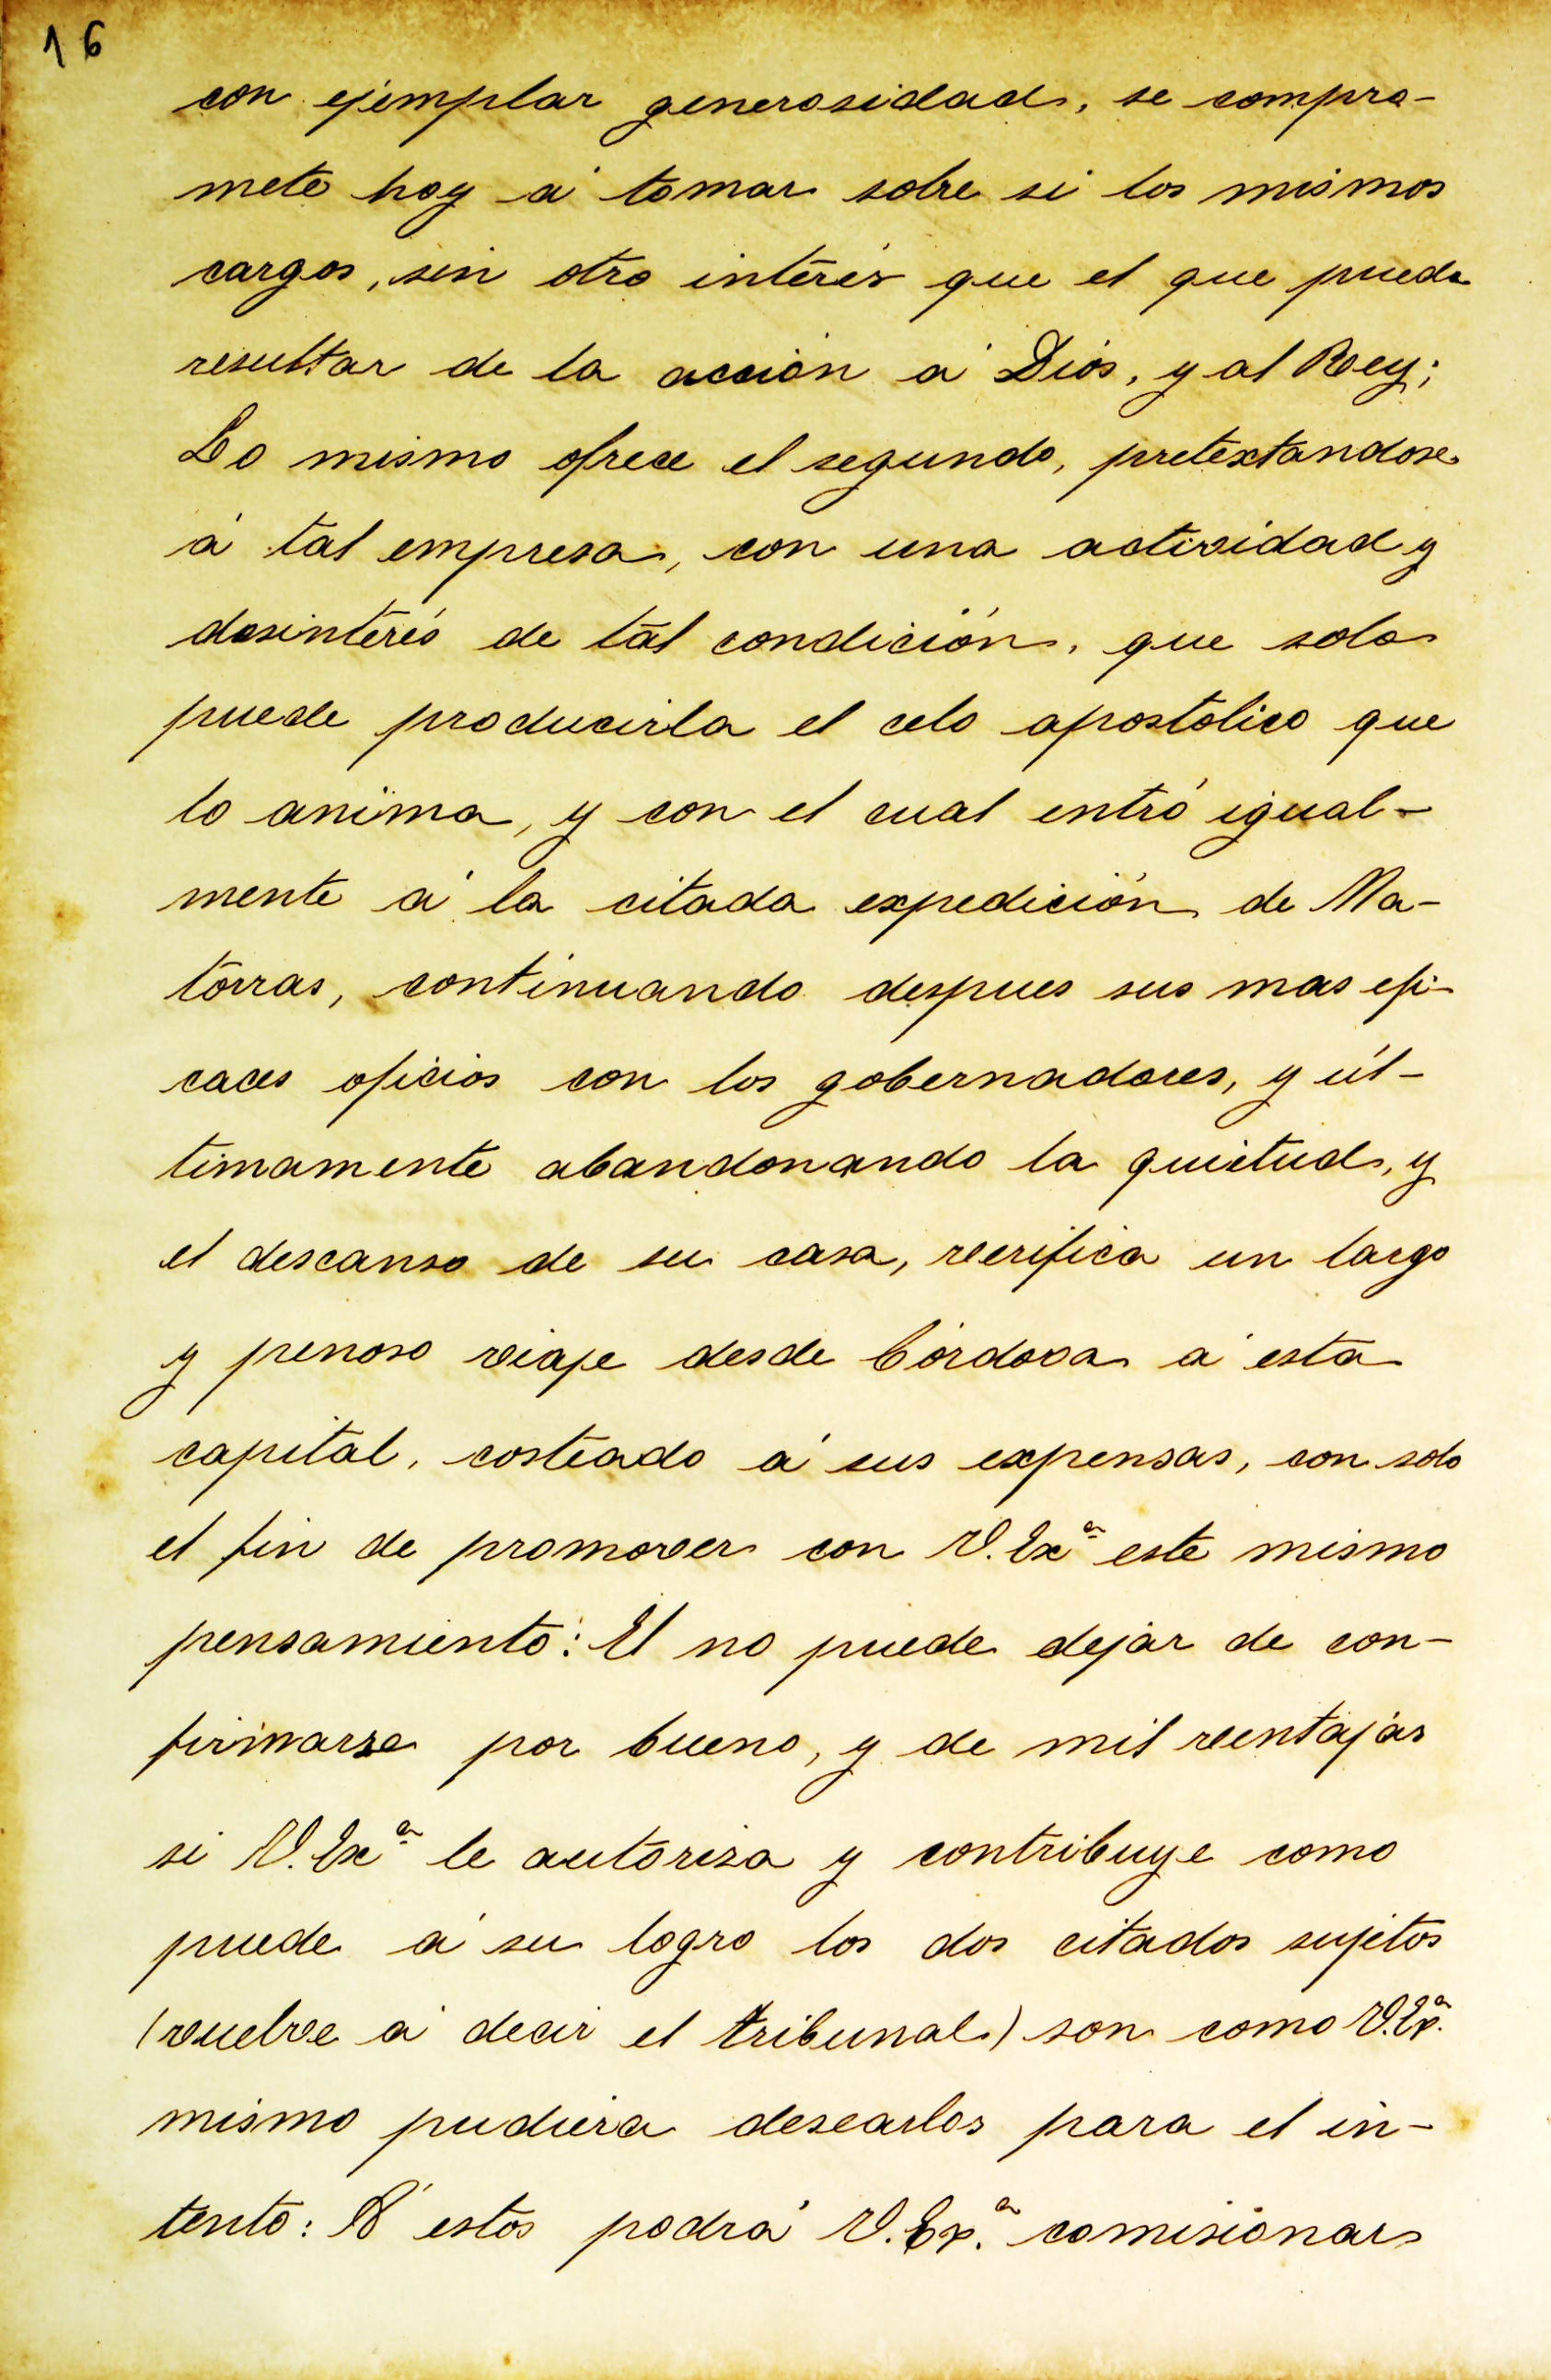 16
con ejemplar generosidad, se compro-
mete hoy á tomar sobre si los mismos
cargos, sin otro interés que el que pueda
resultar de la acción á Dios, y al Rey;
Lo mismo ofrece el segundo, pretextandose
á tal empresa, con una actividad y
desinterés de tal condición, que solo
puede producirla el celo apostolico que
lo anima, y con el cual entró igual-
mente á la citada expedición de Ma-
torras, continuando despues sus mas efi-
caces oficios con los gobernadores, y úl-
timamente abandonando la quietud, y
el descanso de su casa, verifica un largo
y penoso viaje desde Córdova á esta
capital, costeado á sus expensas, con solo
el fin de promover con V. Exª este mismo
pensamiento: El no puede dejar de con-
firmarse por bueno, y de mil ventajas
si V. Exª le autoriza y contribuye como
puede á su logro los dos citados sujetos
(vuelve á decir el tribunal) son como V. Exª.
mismo pudiera desearlos para el in-
tento: Á estos podrá V. Ex.ª comisionar